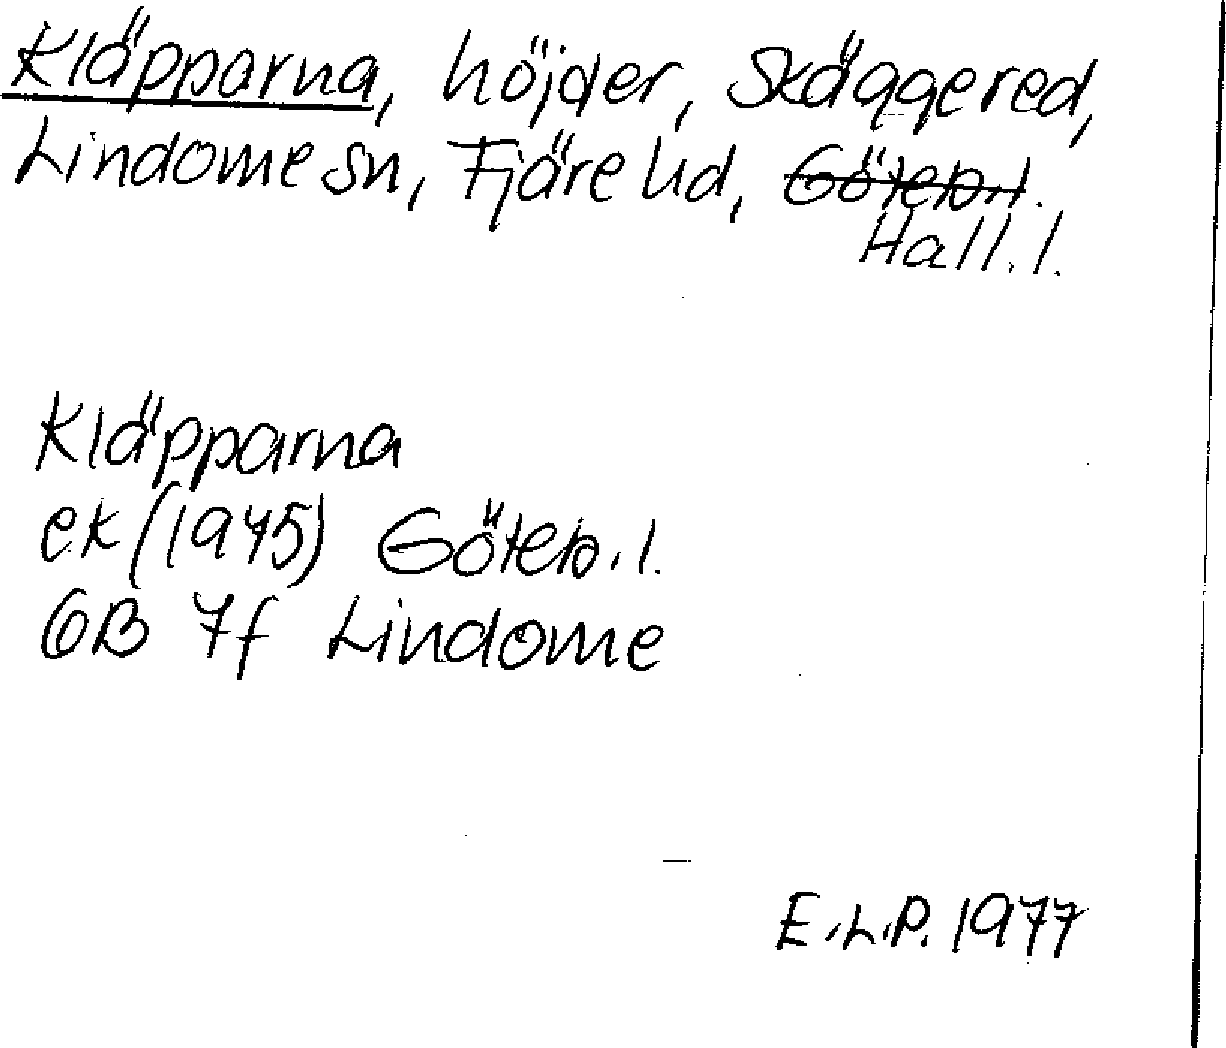 Kläpparna, höjder, Skäggered,
Lindome sn, Fjäre hd, Göteb. l.
Hall. l.
Kläpparna
ek (1975) Göteb. l.
6B 7f Lindome
E.L.P. 1977